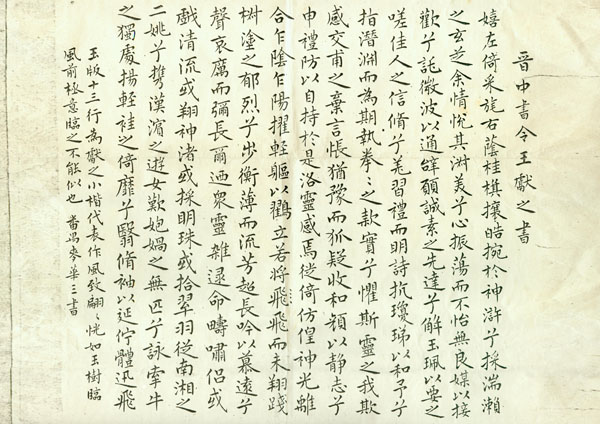 晋中書令王獻之書
嬉左倚采旄右蔭桂棋攘皓捥於神滸兮採湍瀨
之玄芝余情悅其淑美兮心振蕩而不怡無良媒以接
歡兮託微波以通辭願誠素之先達兮解玉珮以要之
嗟佳人之信脩兮羌習禮而明詩抗瓊珶以和予兮
指潛淵而為期執拳々之款實兮懼斯靈之我欺
感交甫之棄言悵猶豫而狐疑收和顏以静志兮
申禮防以自持於是洛靈感焉徙倚仿偟神光離
合乍陰乍陽擢輕軀以鸖立若將飛飛而未翔踐
椒塗之郁烈兮步衡薄而流芳超長吟以慕遠兮
聲哀厲而彌長爾迺眾靈雜逯命疇嘯侶或
戲清流或翔神渚或採明珠或拾翠羽從南湘之
二姚兮攜漢濱之遊女歎匏媧之無匹兮詠牽牛
之獨處揚輕袿之倚靡兮翳脩袖以延佇體迅飛
玉版十三行為獻之小楷代表作風致翩々恍如玉樹臨
風前極意臨之不能似也 番禺麥華三書